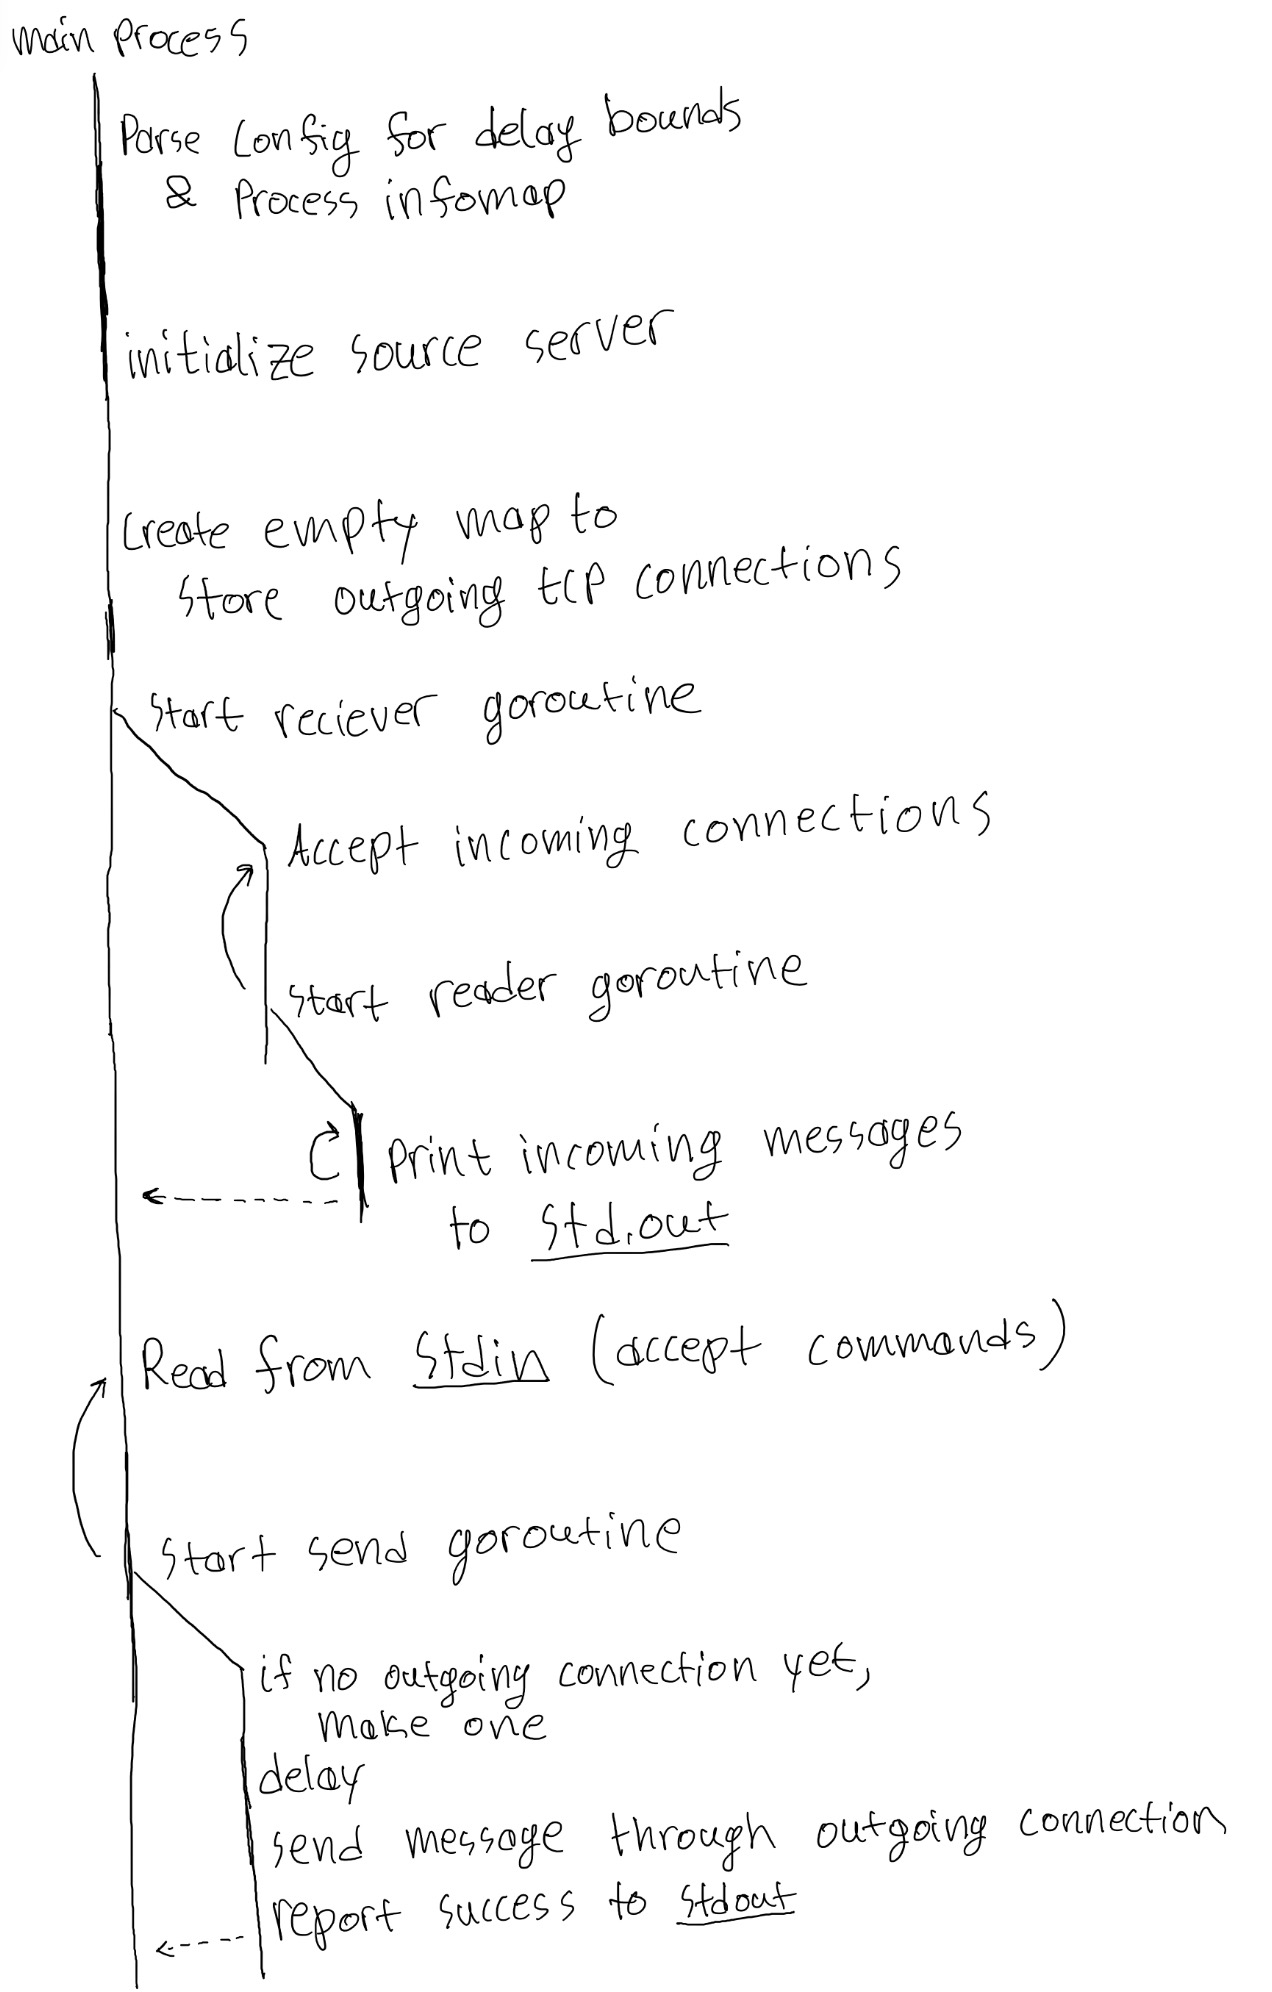 main process
Parse Config for delay bounds
& Process infomap
initialize source server
Create empty map to
Store outgoing tcp connections
Start reciever goroutine
Accept incoming connections
Start reader goroutine
print incoming messages
to Std.out
Read from Stdin (accept commands)
Start send goroutine
if no outgoing connection yet,
make one
delay
send message through outgoing connection
report success to stdout